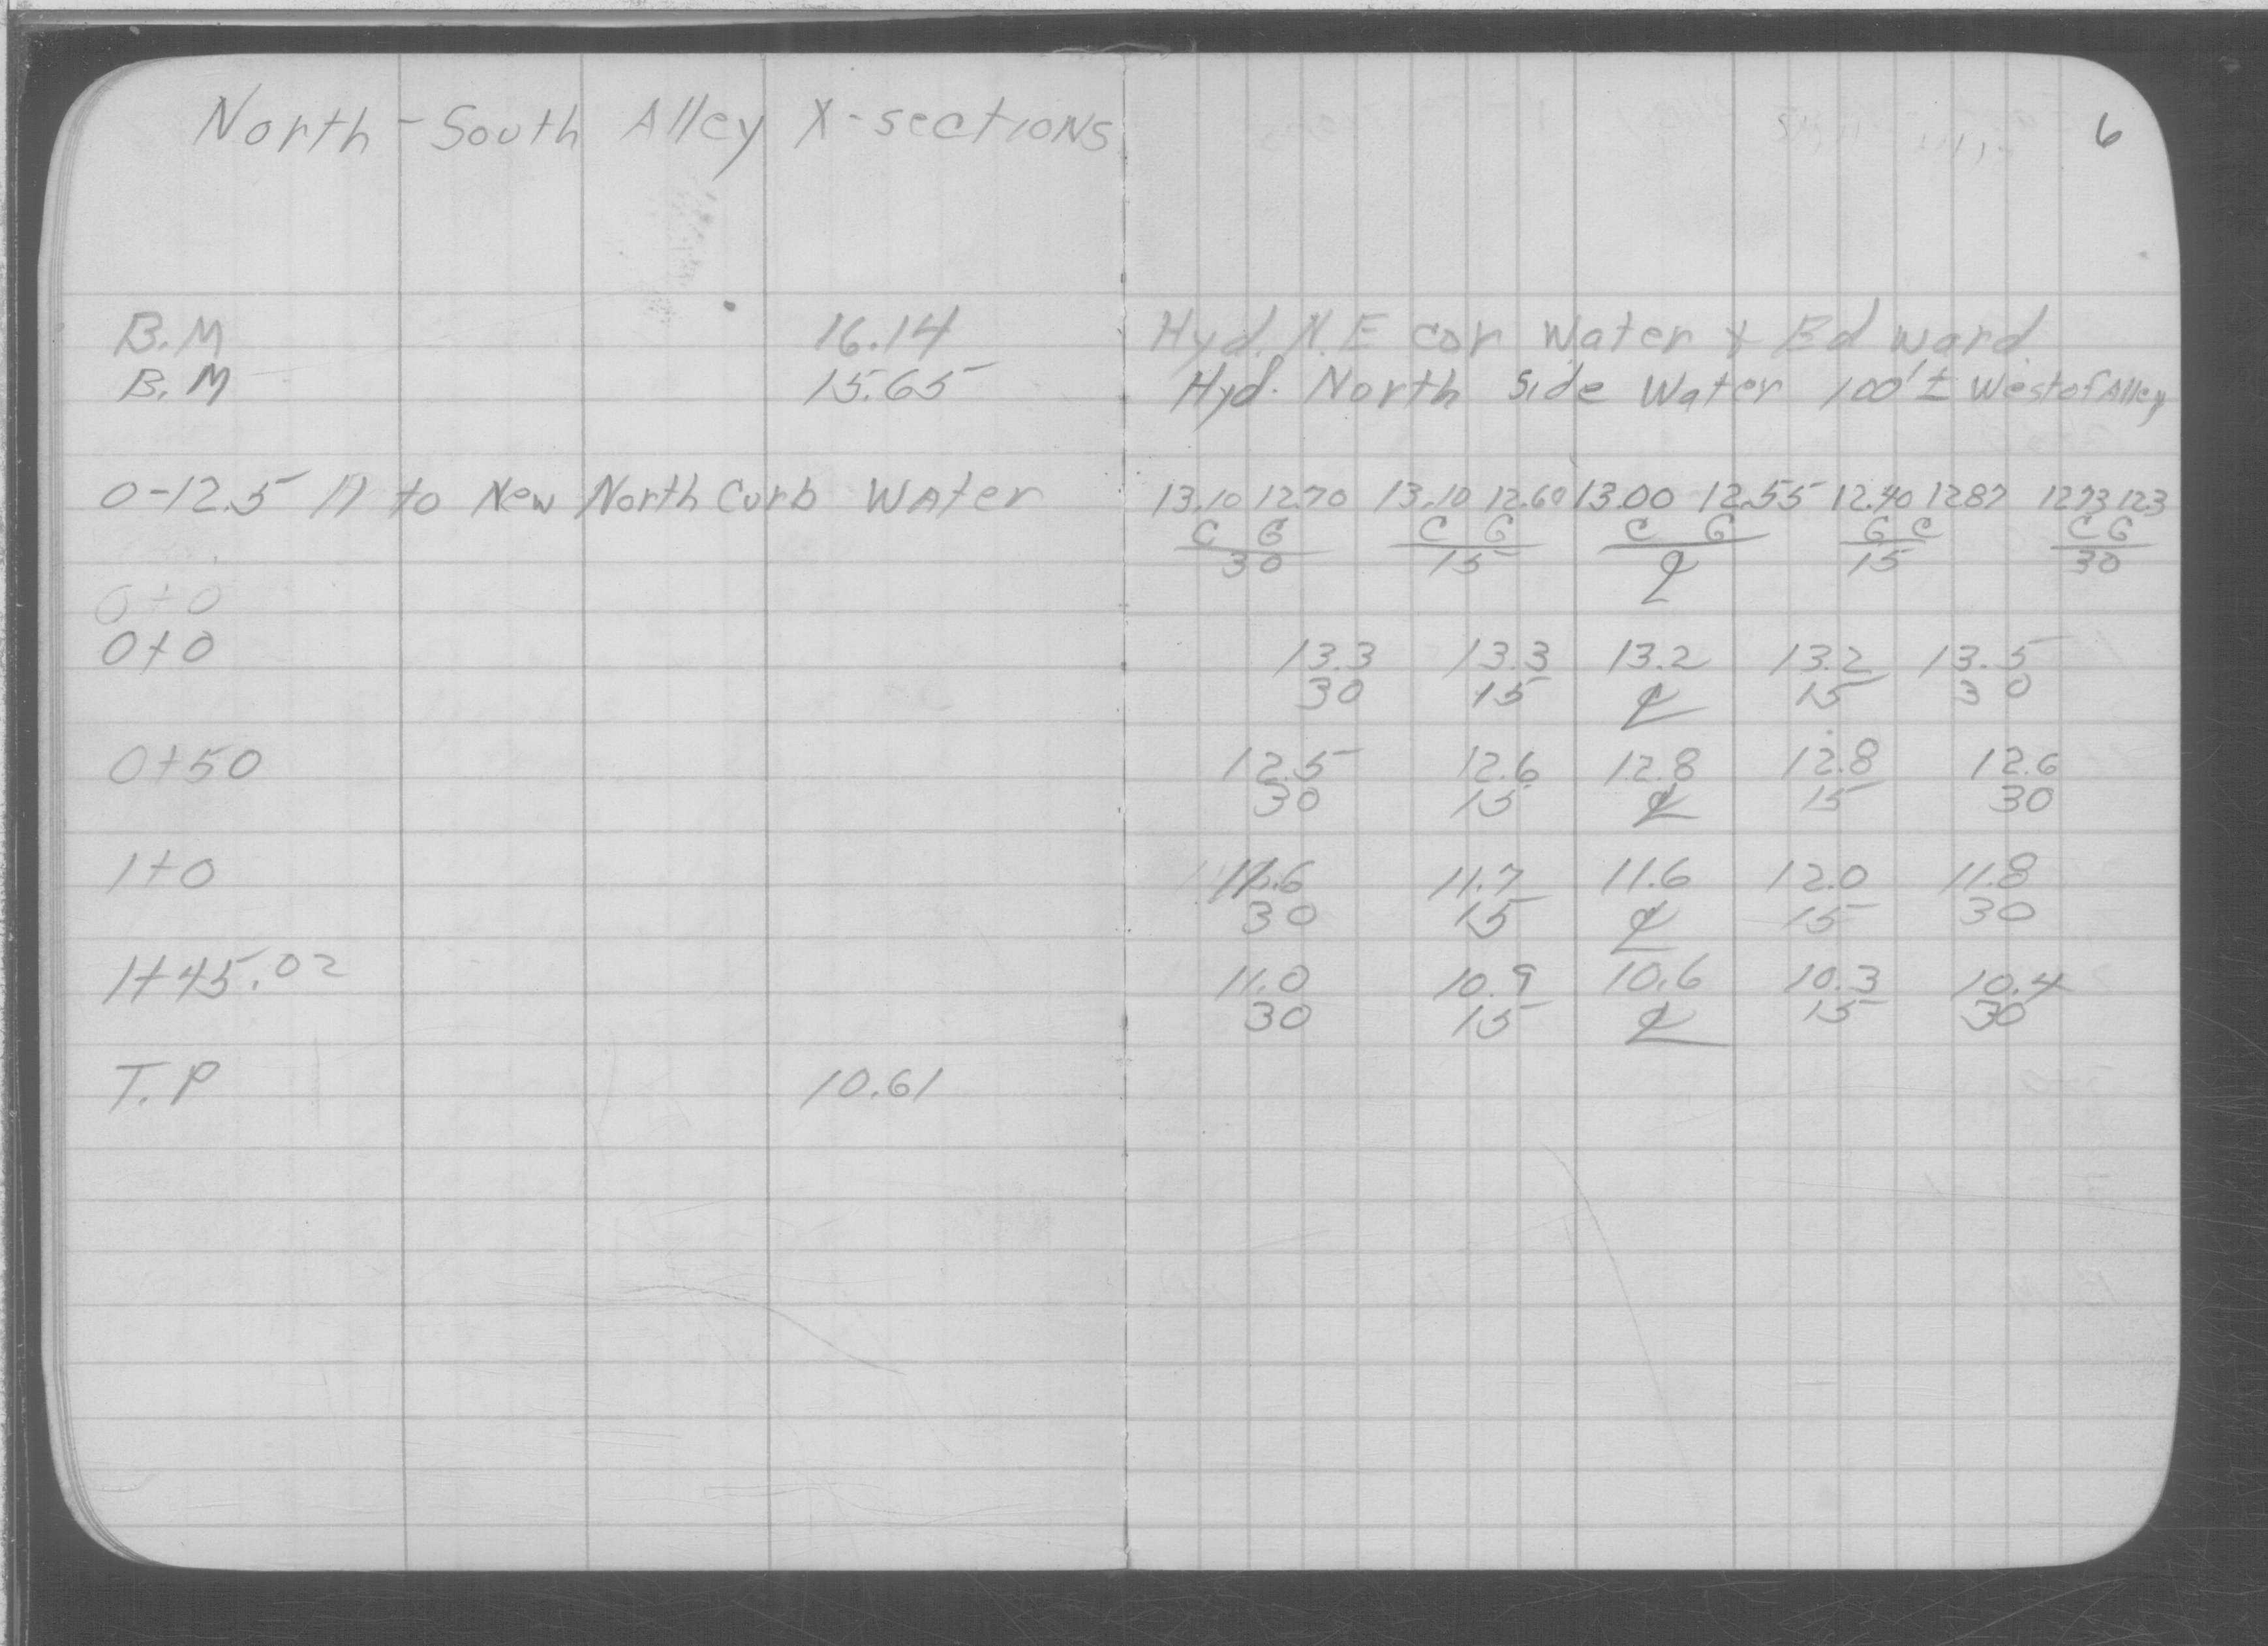 North-South Alley X-sections
6
B.M 16.14 Hyd. N.E cor Water & Edward
B.M 15.65 Hyd. North Side Water 100'± West of Alley
0-12.5 to New North Curb Water 13.10 12.70 13.10 12.60 13.00 12.55 12.40 12.87 12.73 12.3
C G C G C G G C C G
30 15 ℄ 15 30
0+0
0+0 13.3 13.3 13.2 13.2 13.5
30 15 ℄ 15 30
0+50 12.5 12.6 12.8 12.8 12.6
30 15 ℄ 15 30
1+0 11.6 11.7 11.6 12.0 11.8
30 15 ℄ 15 30
1+45.02 11.0 10.9 10.6 10.3 10.4
30 15 ℄ 15 30
T.P 10.61